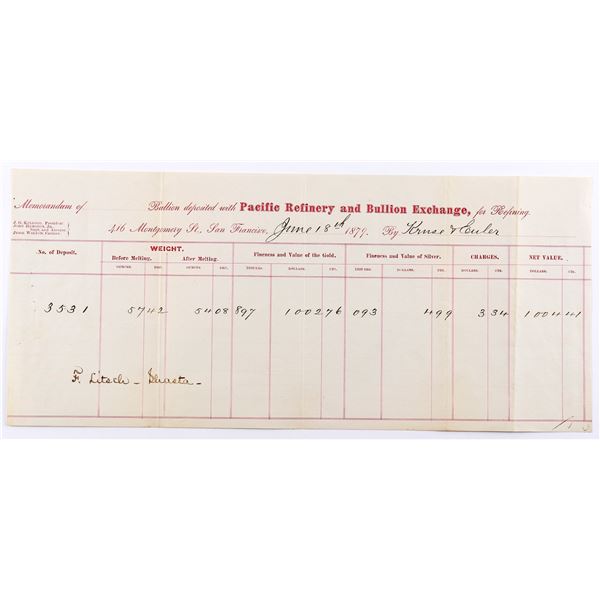 Memorandum of Bullion deposited with Pacific Refinery and Bullion Exchange, for Refining.
416 Montgomery St., San Francisco, June 18th 1879. By Kruse & Euler
No. of Deposit. WEIGHT. Fineness and Value of the Gold. Fineness and Value of Silver. CHARGES. NET VALUE.
Before Melting. After Melting.
OUNCES. DEC. OUNCES. DEC. FINENESS. DOLLARS. CTS. FINENESS. DOLLARS. CTS. DOLLARS. CTS. DOLLARS. CTS.
3531 57 42 54 08 897 1002 76 093 4 99 3 34 1004 41
F. Litsch - Shasta -